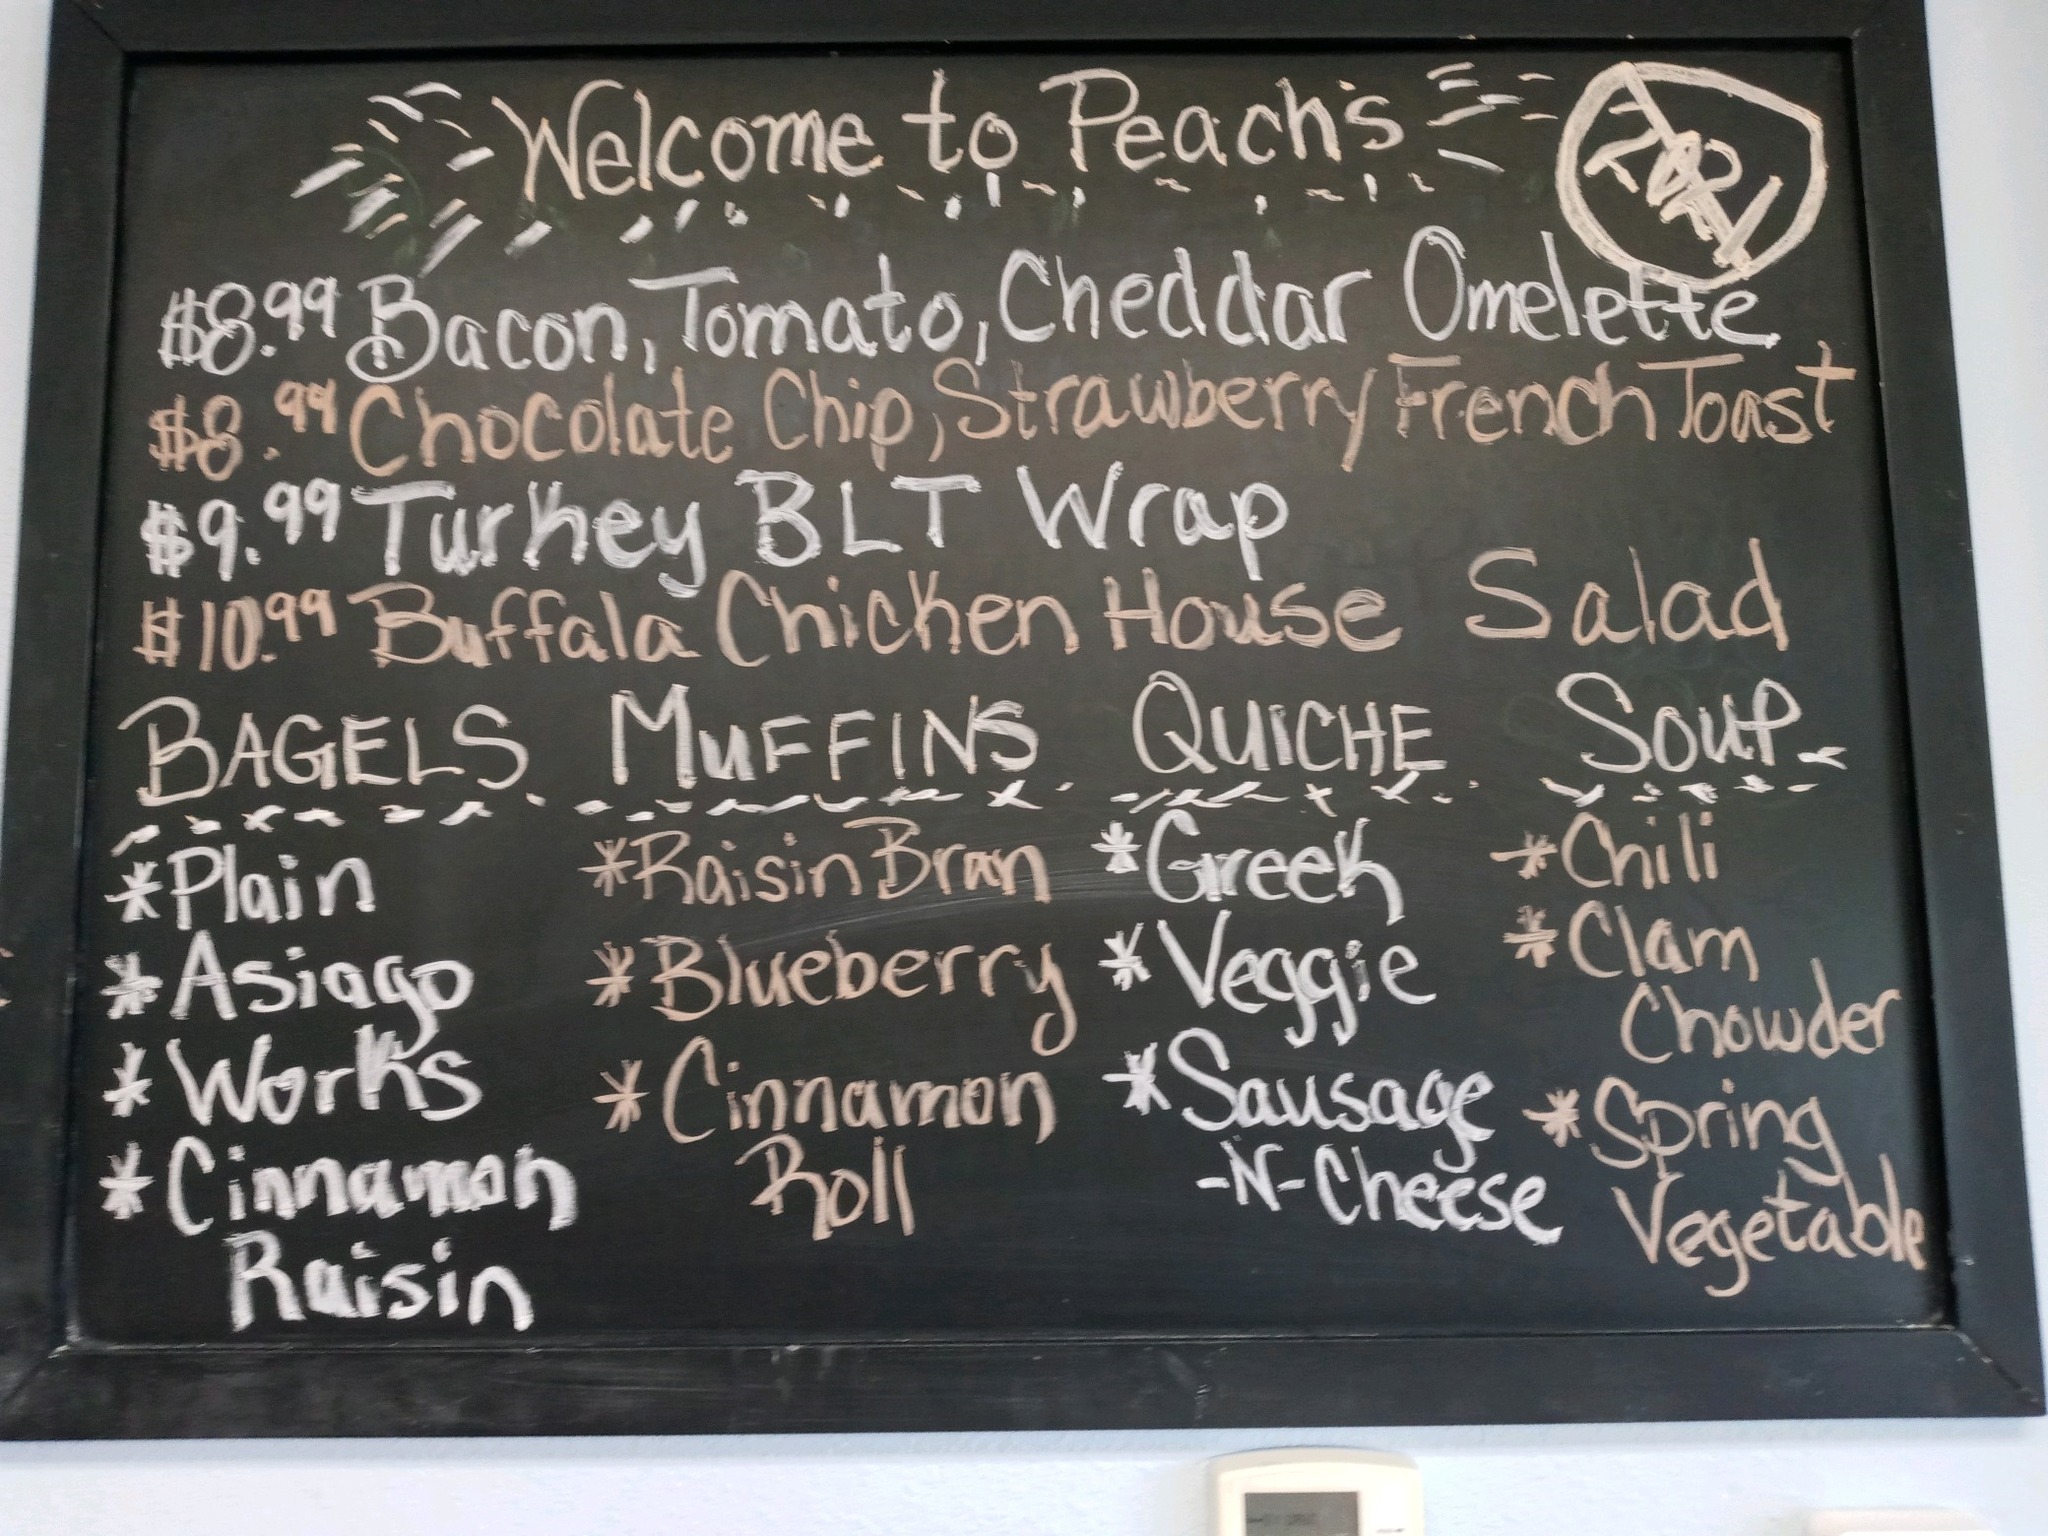 Welcome to Peach's
2021
$8.99 Bacon, Tomato, Cheddar Omelette
$8.99 Chocolate Chip, Strawberry French Toast
$9.99 Turkey BLT Wrap
$10.99 Buffala Chicken House Salad
BAGELS
*Plain
*Asiago
*Works
*Cinnamon
Raisin
MUFFINS
*Raisin Bran
*Blueberry
*Cinnamon
Roll
QUICHE
*Greek
*Veggie
*Sausage
-N-Cheese
SOUP
*Chili
*Clam
Chowder
*Spring
Vegetable